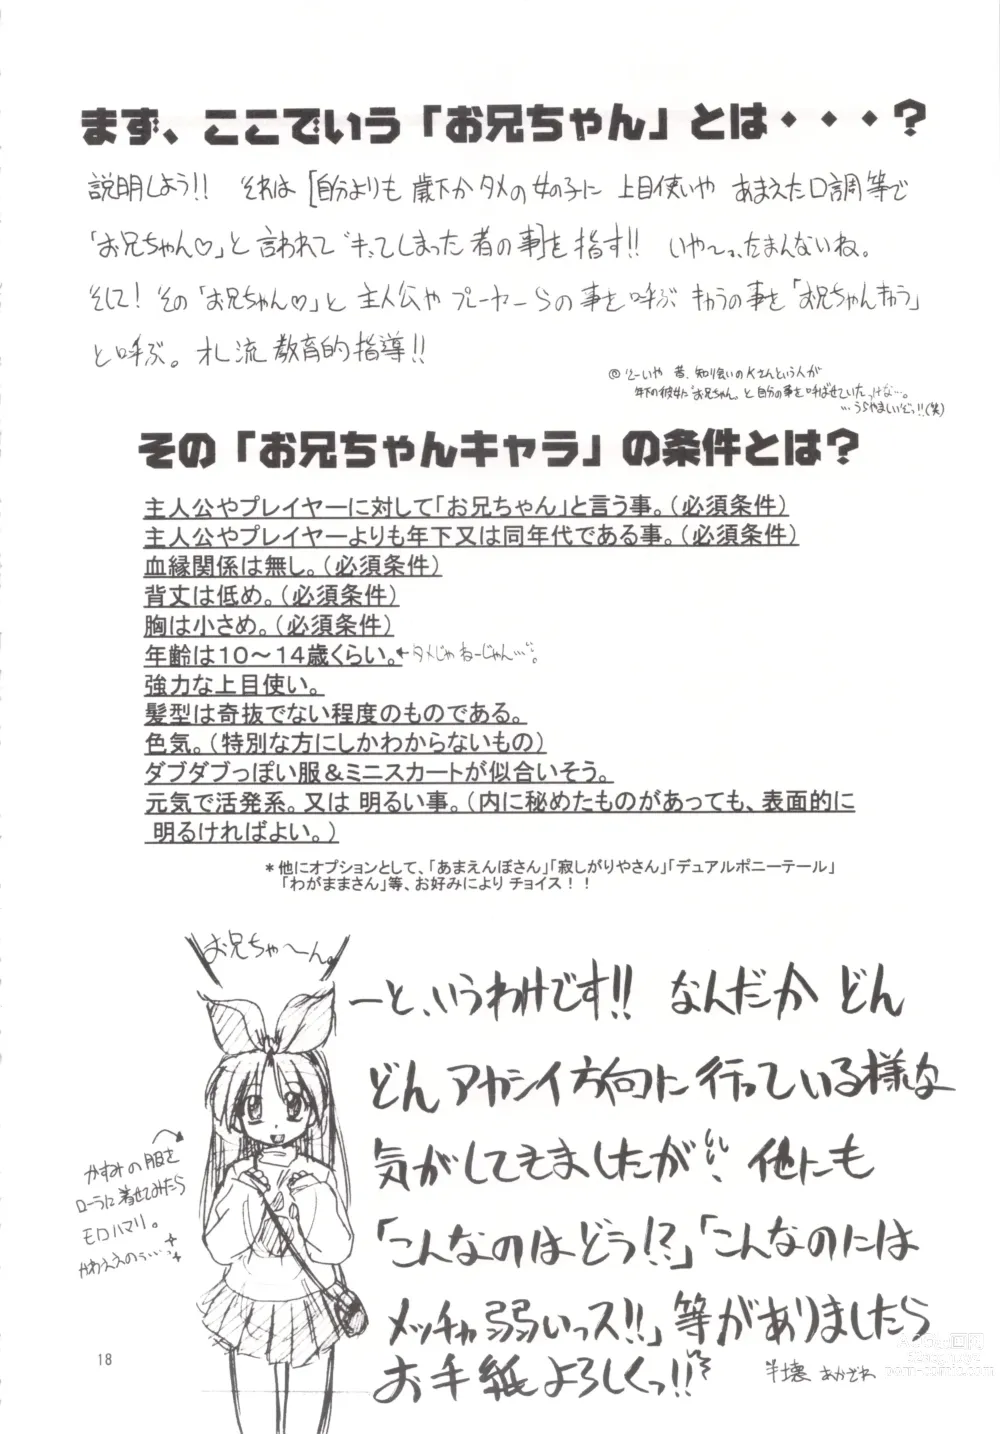 まず、ここでいう「お兄ちゃん」とは・・・?
説明しよう!! それは[自分よりも歳下かタメの女の子に 上目使いや あまえた口調等で
「お兄ちゃん♡」と言われて ってしまった者の事]を指す!! いや~っ、たまんないね。
そして! その「お兄ちゃん♡」と 主人公や プレーヤーらの事を呼ぶ キャラの事を「お兄ちゃんキャラ」
と呼ぶ。オレ流教育的指導!!
昔、知り会いのKさんという人が
年下の彼女に「お兄ちゃん」と自分の事を呼ばせていたっけな…。
…うらやましいぞっ!!(笑)
その「お兄ちゃんキャラ」の条件とは?
主人公やプレイヤーに対して「お兄ちゃん」と言う事。(必須条件)
主人公やプレイヤーよりも年下又は同年代である事。(必須条件)
血縁関係は無し。(必須条件)
背丈は低め。(必須条件)
胸は小さめ。(必須条件)
年齢は10~14歳くらい。←タメじゃねーじゃん…。
強力な上目使い。
髪型は奇抜でない程度のものである。
色気。(特別な方にしかわからないもの)
ダブダブっぽい服&ミニスカートが似合いそう。
元気で活発系。又は 明るい事。(内に秘めたものがあっても、表面的に
明るければよい。)
*他にオプションとして、「あまえんぼさん」「寂しがりやさん」「デュアルポニーテール」
「わがままさん」等、お好みにより チョイス!!
お兄ちゃ~ん。
ーと、いうわけです!! なんだか どん
どん アカシイ方向に行っている様な
気がしてきましたが 他にも
「こんなのはどう!?」「こんなのには
メッチャ弱いっス!!」等がありましたら
お手紙よろしくっ!!
半壊 あかざわ
かすみの服を
ローラに着せてみたら
モロハマリ。
かわええのぅ…
18